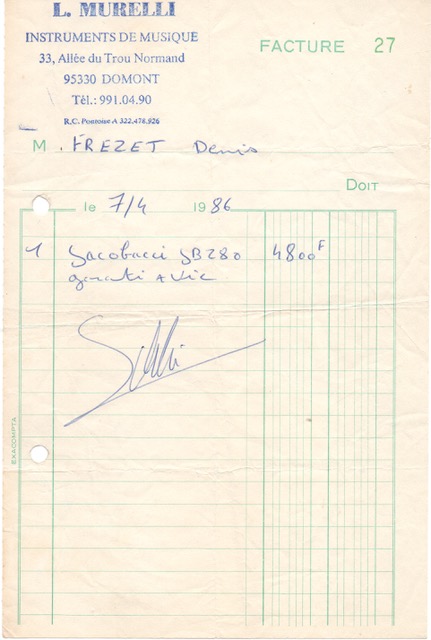 L. MURELLI
INSTRUMENTS DE MUSIQUE
FACTURE 27
33, Allée du Trou Normand
95330 DOMONT
Tél.: 991.04.90
R.C. Pontoise A 322.478.926
M. FREZET Denis
DOIT
le 7/4 1986
1 Jacobacci JB280 4800F
garanti à vie
EXACOMPTA